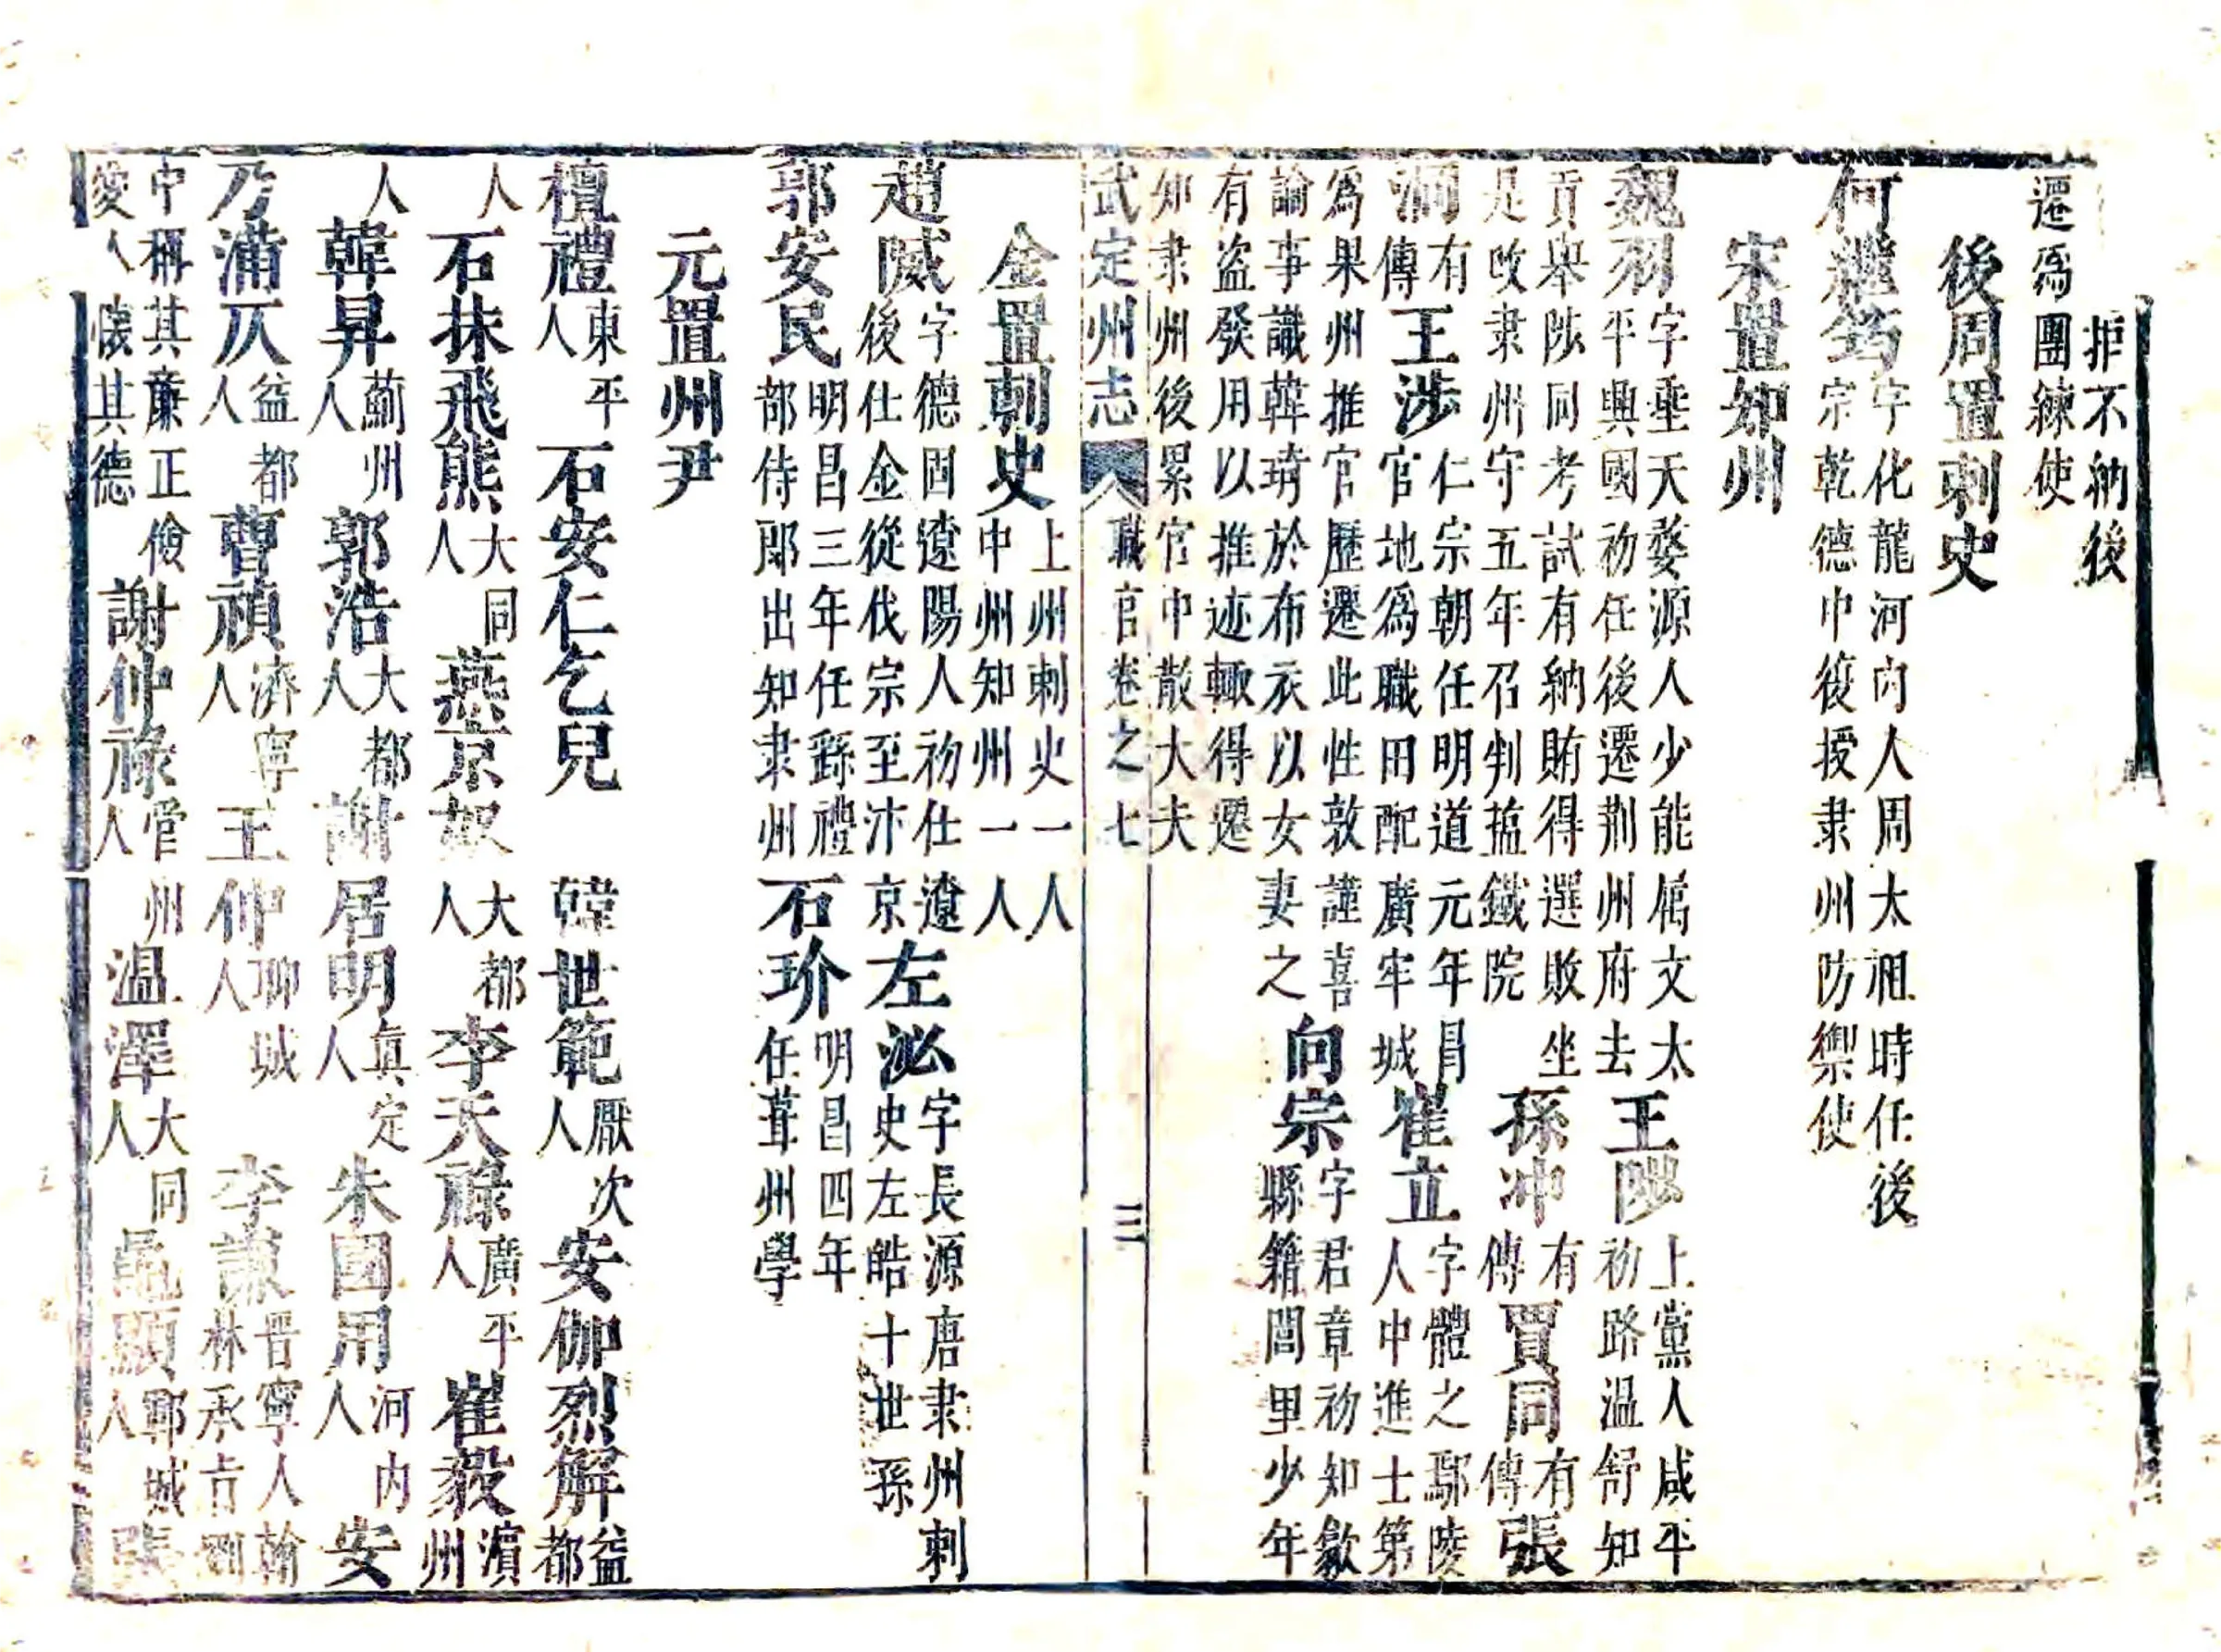 拒不納後
遷爲團練使
後周置刺史
何繼筠
字化龍河内人周太祖時任後
宗乾德中復授隶州防禦使
宋置知州
魏羽
字垂天婺源人少能属文太
平興國初任後遷荆州府去
王陟
上黨人咸平
初路温舒知
貢舉陟同考試有納賄得選敗坐
是改隶州守五年召判揾鐵院
孫冲
有
傳
賈同
有
傳
張
洞
有
傳
王渉
仁宗朝任明道元年冐
官地爲職田配廣牢城
崔立
字體之鄢陵
人中進士第
爲果州推官歷遷此性敦謹喜
論事識韓琦於布衣以女妻之
向宗
字君章初知歙
縣籍閭里少年
有盗發用以推迹輙得遷
知隶州後累官中散大夫
武定州志 職官卷之七 三
金置刺史
上州刺史一人
中州知州一人
趙隇
字德固遼陽人初仕遼
後仕金從伐宗至汴京
左泌
字長源唐隶州刺
史左皓十世孫
郭安民
明昌三年任繇禮
部侍郎出知隶州
石玠
明昌四年
任葺州學
元置州尹
檀禮
東平
人
石安仁乞兒
韓世範
厭次
人
安伽烈解
益
都
人
石抹飛熊
大同
人
燕京奴
大都
人
李天祿
廣平
人
崔毅
濵
州
人
韓昇
薊州
人
郭浩
大都
人
謝居明
真定
人
朱國用
河内
人
安
乃蒲仄
益都
人
曹禎
濟寧
人
王仲
聊城
人
李謙
晋寧人翰
林承旨劉
中稱其亷正儉
愛人懐其德
謝仲祿
管州
人
温澤
大同
人
顯
鄆城
人
張